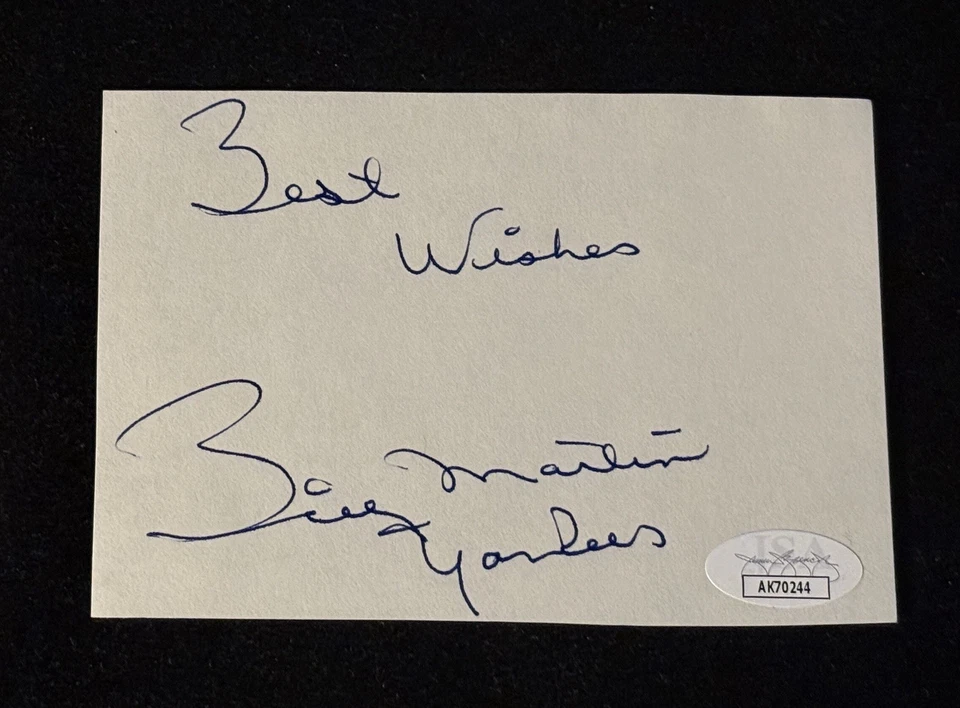 Best
Wishes
Billy Martin
Yankees
JSA
AK70244